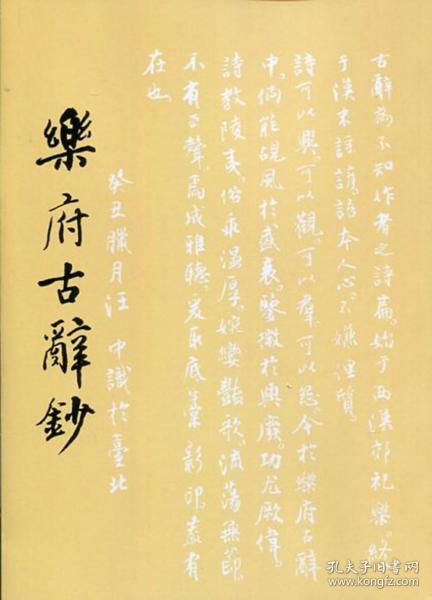 古辭為不知作者之詩篇。始于兩漢郊祀樂。終
于漢末謠諺。語本人心。不嫌俚質。
詩可以興。可以觀。可以羣。可以怨。今於樂府古辭
中。倘能覘風於盛衰。鑒徵於興廢。功尤厥偉。
詩教陵夷。俗乖溫厚。婉孌豔歌。流蕩無節。
不有聲。焉成雅聽。爰取底藁影印。蓋有
在也。
癸丑臘月汪中識於臺北
樂府古辭鈔
孔夫子旧书网
www.kongfz.com